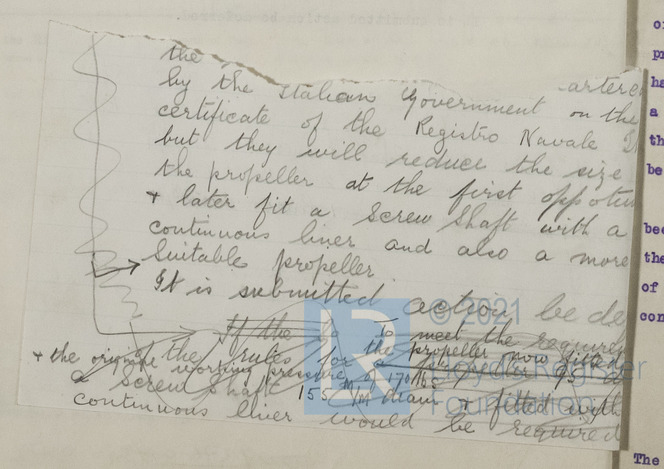 the
by the Italian Government on the
certificate of the Registro Navale
but they will reduce the size
the propeller at the first oppotun
+ later fit a Screw Shaft with a
continuous liner and also a more
suitable propeller
It is submitted action be de
If the to meet the require
the rules for the propeller now fitted
+ the original working pressure of 170 lbs
a Screw Shaft 155 M/M diam + fitted with
continuous liner would be required
© 2021
Lloyd's Register
Foundation
pr
ha
a
th
be
bee
the
of
con
The